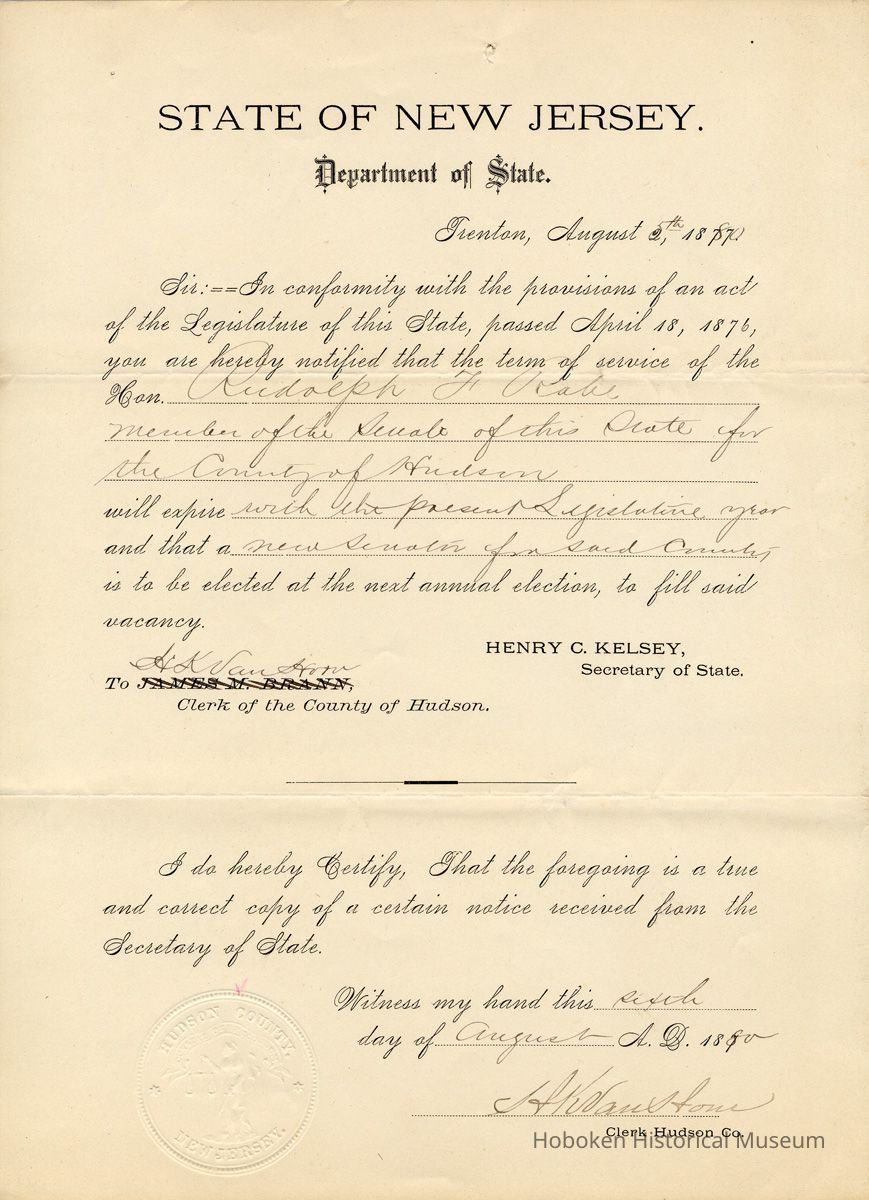 STATE OF NEW JERSEY.
Department of State.
Trenton, August 5th, 1880
Sir:==In conformity with the provisions of an act
of the Legislature of this State, passed April 18, 1876,
you are hereby notified that the term of service of the
Hon. Rudolph F Rabe
member of the Senate of this State for
the County of Hudson
will expire with the present Legislative year
and that a new Senator for said County
is to be elected at the next annual election, to fill said
vacancy.
HENRY C. KELSEY,
Secretary of State.
H K Van Horn
To JAMES M. BRANN,
Clerk of the County of Hudson.
I do hereby Certify, That the foregoing is a true
and correct copy of a certain notice received from the
Secretary of State.
Witness my hand this sixth
day of August A. D. 1880
H K Van Horn
Clerk Hudson Co.
HUDSON COUNTY.
NEW JERSEY.
Hoboken Historical Museum